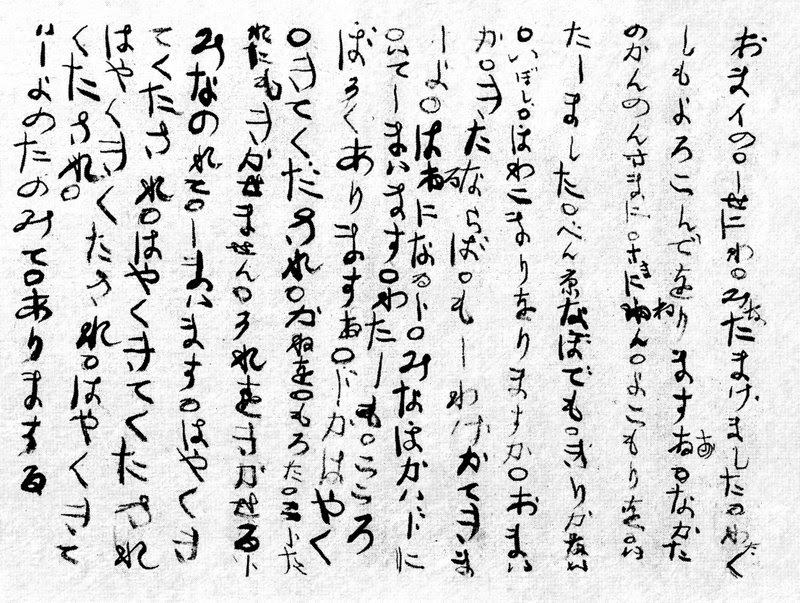 おまイの。しせにわ。みなたまげました。わたく
しもよろこんでをりまする。なかた
のかんのんさまに。さまにねん。よこもりを。い
たしました。べん京なぼでも。きりかない
。いぼし。ほわこまりをりますか。おまい
か。きたならば。もしわけかてきま
しよ。はるになるト。みなほかいドに
。いてしまいます。わたしも。こころ
ぼそくありまする。ドかはやく
。きてくだされ。かねを。もろた。こトた
れにもきかせません。それをきかせるト
みなのれて。しまいます。はやくき
てくたされ。はやくきてくたされ
はやくきてくたされ。はやくきて
くたされ。
いしよのたのみて。ありまする